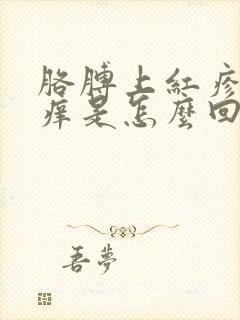 胳膊上紅疹
痒是怎麼回
吾夢